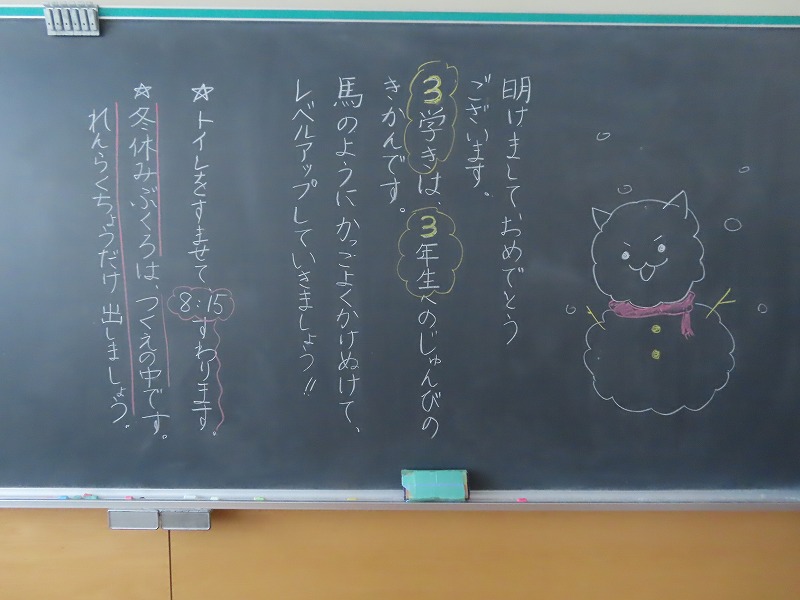 明けましておめでとう
ございます。
3学きは、3年生へのじゅんびの
きかんです。
馬のようにかっこよくかけぬけて、
レベルアップしていきましょう!!
☆トイレをすませて8:15すわります。
☆冬休みぶくろは、つくえの中です。
れんらくちょうだけ出しましょう。